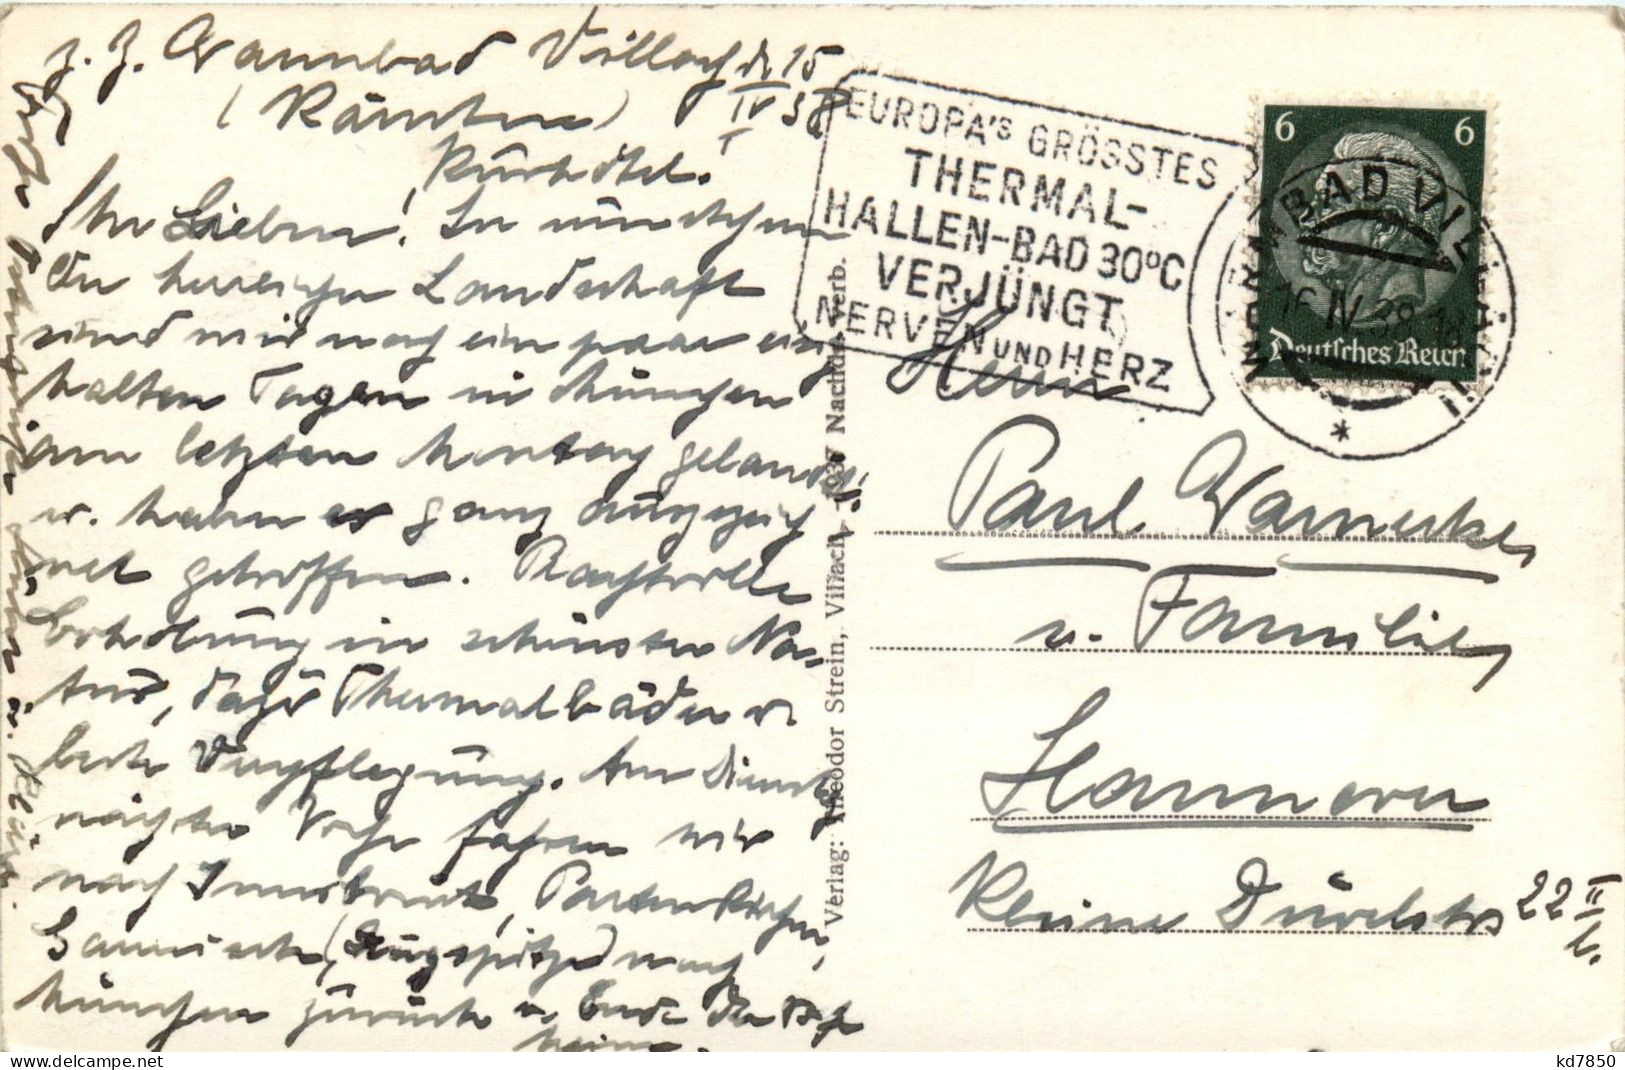 z. Z. Warmbad Villach d. 15
(Kärnten) IV 38
Kurhotel.
Ihr Lieben! In
der hiesigen Landschaft
sind wir nach ein paar
kalten Tagen in München
am letzten Montag gelandet
u. haben es ganz ausgezeich
net getroffen. Prachtvolle
Erholung in schönster Na-
tur, dazu Thermalbäder u.
beste Verpflegung. Am Dienst.
nächster Woche fahren wir
nach Innsbruck, Partenkirchen,
Garmisch, (Zugspitze) nach
München zurück u. Ende der Woche
heim.
EUROPA'S GRÖSSTES
THERMAL-
HALLEN-BAD 30°C
VERJÜNGT
NERVEN UND HERZ
6 6
Deutsches Reich
WARMBAD VILLACH
16.IV.38
*
Verlag: Theodor Strein, Villach 1937 Nachdr. verb.
Herrn
Paul Warnecke
u. Familie
Hannover
Kleine Düwelstr 22 II
l.
delcampe.net
kd7850